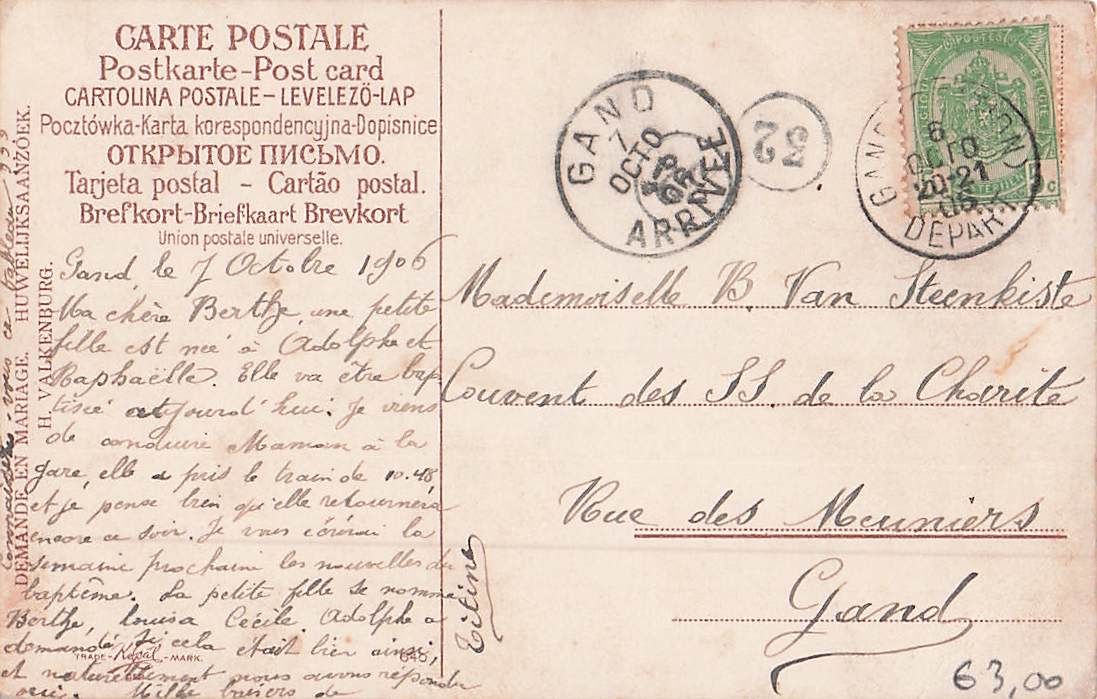 CARTE POSTALE
Postkarte-Post card
CARTOLINA POSTALE-LEVELEZŐ-LAP
Pocztówka-Karta korespondencyjna-Dopisnice
ОТКРЫТОЕ ПИСЬМО.
Tarjeta postal - Cartão postal.
Brefkort-Briefkaart Brevkort
Union postale universelle.
DEMANDE EN MARIAGE. HUWELIJKSAANZOEK.
H. VALKENBURG.
connaissez-vous ce tableau ???
Gand, le 7 Octobre 1906
Ma chère Berthe, une petite
fille est née à Adolphe et
Raphaëlle. Elle va être bap
tisée aujourd'hui. Je viens
de conduire Maman à la
gare, elle a pris le train de 10.48
et je pense bien qu'elle retournera
encore ce soir. Je vous écrirai la
semaine prochaine les nouvelles du
baptême. La petite fille se nomme
Berthe, Louisa Cécile. Adolphe a
demandé si cela était bien ainsi,
et naturellement nous avons répondu
oui. Mille baisers de
Titine
TRADE-Royal-MARK.
645
GAND
7
OCTO
06
ARRIVÉE
32
POSTES
GAND
6
OCTO
20-21
06
DEPART
5c
Mademoiselle B. Van Steenkiste
Couvent des SS. de la Charité
Rue des Meuniers
Gand
63,00